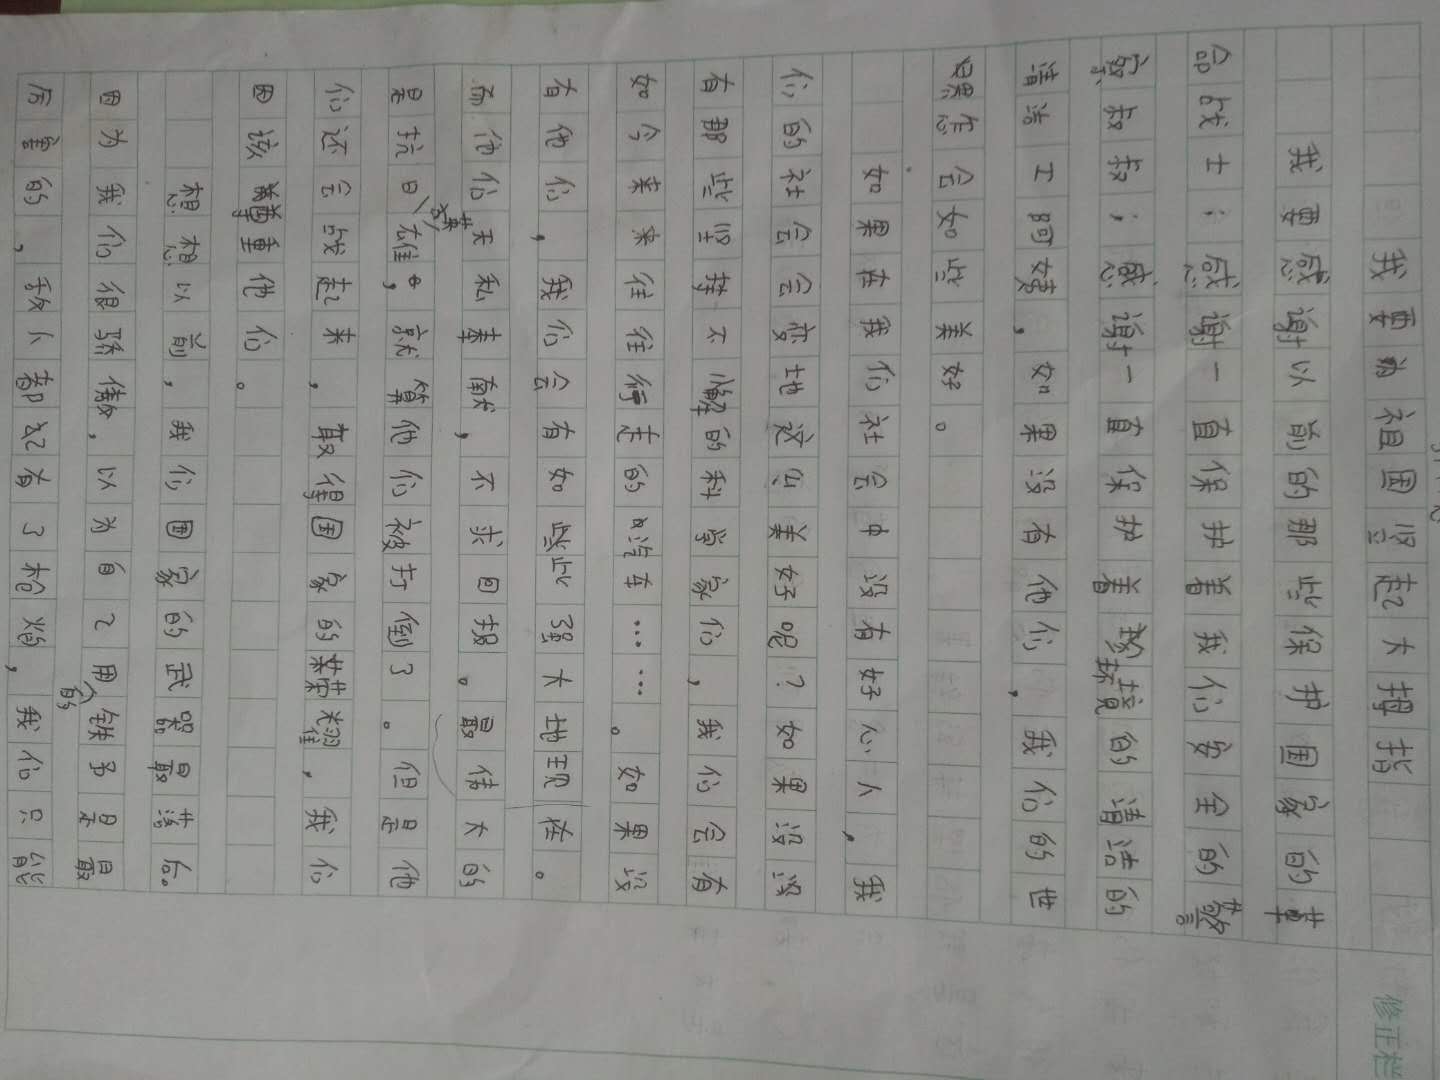 我要为祖国竖起大拇指
我要感谢以前的那些保护国家的革
命战士；感谢一直保护着我们安全的警
察叔叔；感谢一直保护着环境的清洁的
清洁工阿姨，如果没有他们，我们的世
界怎会如些美好。
如果在我们社会中没有好心人，我
们的社会会变地这么美好呢？如果没
有那些坚持不懈的科学家们，我们会有
如今来来往往行走的汽车……。如果没
有他们，我们会有如些强大地现在。
而他们无私奉献，不求回报。最伟大的
是抗日英雄，就算他们被打倒了。但是他
们还会战起来，取得国家的荣耀，我们
因该尊重他们。
想想以前，我们国家的武器最落后。
因为我们很骄傲，以为自己用的铁矛是最
厉害的，敌人都配有了枪炮，我们只能
修正栏